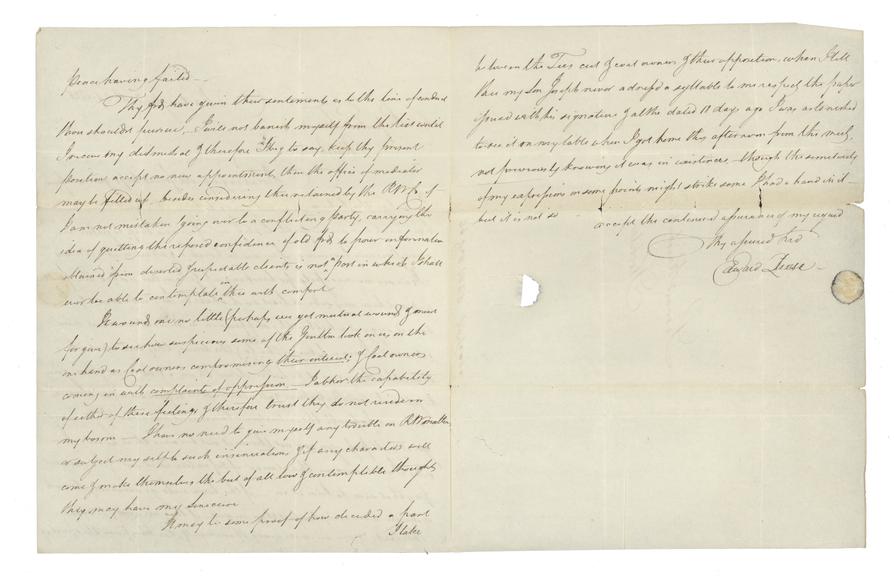 Peace having failed —
Thy frds have given their sentiments as to the line of conduct
thou shouldst pursue, I will not banish myself from the kist could
I excuse my did mediat & therefore beg to say, keep thy present
position accept no new appointment, then the office of mediator
may be filled up, besides considering thee retained by the RW Co, if
I am not mistaken going over to a conflicting party, carrying the
idea of quitting the reposed confidence of old frds to pour information
obtained from deserted respectable clients is not a post in which I shall
ever be able to contemplate thee in with comfort
It wound me no little (perhaps even yet mutual wound & must
forgive) to see how suspicious some of the Gentlmn look on us, on the
one hand as Coal owners compromising their interest, & Coal owners
coming in with complaints of oppression — I abhor the capability
of either of these feelings & therefore trust they do not reside in
my bosom — I have no need to give myself any trouble on RW matters,
& subject my self to such insinuations & if any characters will
come & make themselves the but of all low & contemptible thoughts
they may have my Sinecure
It may be some proof of how decided a part
I take
between the Tees cut & coal owners & their opposition, when I tell
thee my Son Joseph never adressd a syllable to me respectg the paper
issued with his signature & altho dated 17 days ago I was astonished
to see it on my table when I got home this afternoon from the meetg,
not previously knowing it was in existence — though the similarity
of my expression on some points might strike some I had a hand in it
but it is not so
accept the continued assurance of my regard
Thy assured frd
Edward Pease